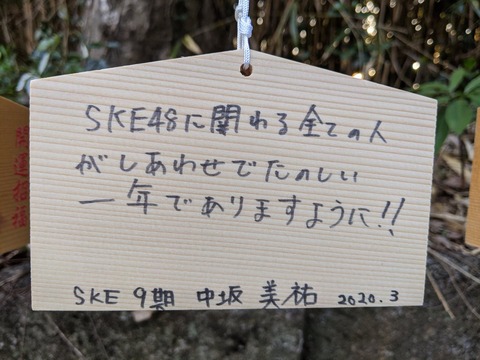 SKE48に関わる全ての人
がしあわせでたのしい
一年でありますように!!
SKE 9期 中坂 美祐 2020.3
開運招福